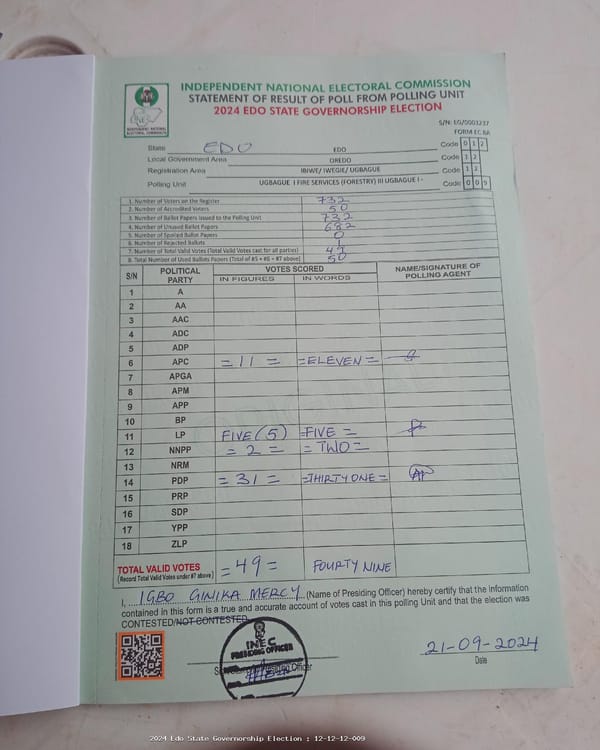 INDEPENDENT NATIONAL ELECTORAL COMMISSION
STATEMENT OF RESULT OF POLL FROM POLLING UNIT
2024 EDO STATE GOVERNORSHIP ELECTION
S/N: EG/0003237
FORM EC 8A
State EDO EDO Code 0 1 2
Local Government Area OREDO Code 1 2
Registration Area IBIWE/ IWEGIE/ UGBAGUE Code 1 2
Polling Unit UGBAGUE I FIRE SERVICES (FORESTRY) III UGBAGUE I - Code 0 0 9
1. Number of Voters on the Register 732
2. Number of Accredited Voters 50
3. Number of Ballot Papers issued to the Polling Unit 732
4. Number of Unused Ballot Papers 682
5. Number of Spoiled Ballot Papers 0
6. Number of Rejected Ballots 1
7. Number of Total Valid Votes (Total Valid Votes cast for all parties) 49
8. Total Number of Used Ballots Papers (Total of #5 + #6 + #7 above) 50
S/N POLITICAL PARTY VOTES SCORED NAME/SIGNATURE OF POLLING AGENT
IN FIGURES IN WORDS
1 A
2 AA
3 AAC
4 ADC
5 ADP
6 APC =11= =ELEVEN=
7 APGA
8 APM
9 APP
10 BP
11 LP FIVE(5) =FIVE=
12 NNPP =2= =TWO=
13 NRM
14 PDP =31= =THIRTY ONE=
15 PRP
16 SDP
17 YPP
18 ZLP
TOTAL VALID VOTES =49= FOURTY NINE
(Record Total Valid Votes under #7 above)
I, IGBO GINIKA MERCY (Name of Presiding Officer) hereby certify that the information
contained in this form is a true and accurate account of votes cast in this polling Unit and that the election was
CONTESTED/NOT CONTESTED.
INEC
PRESIDING OFFICER
21-09-2024
Date
2024 Edo State Governorship Election : 12-12-12-009